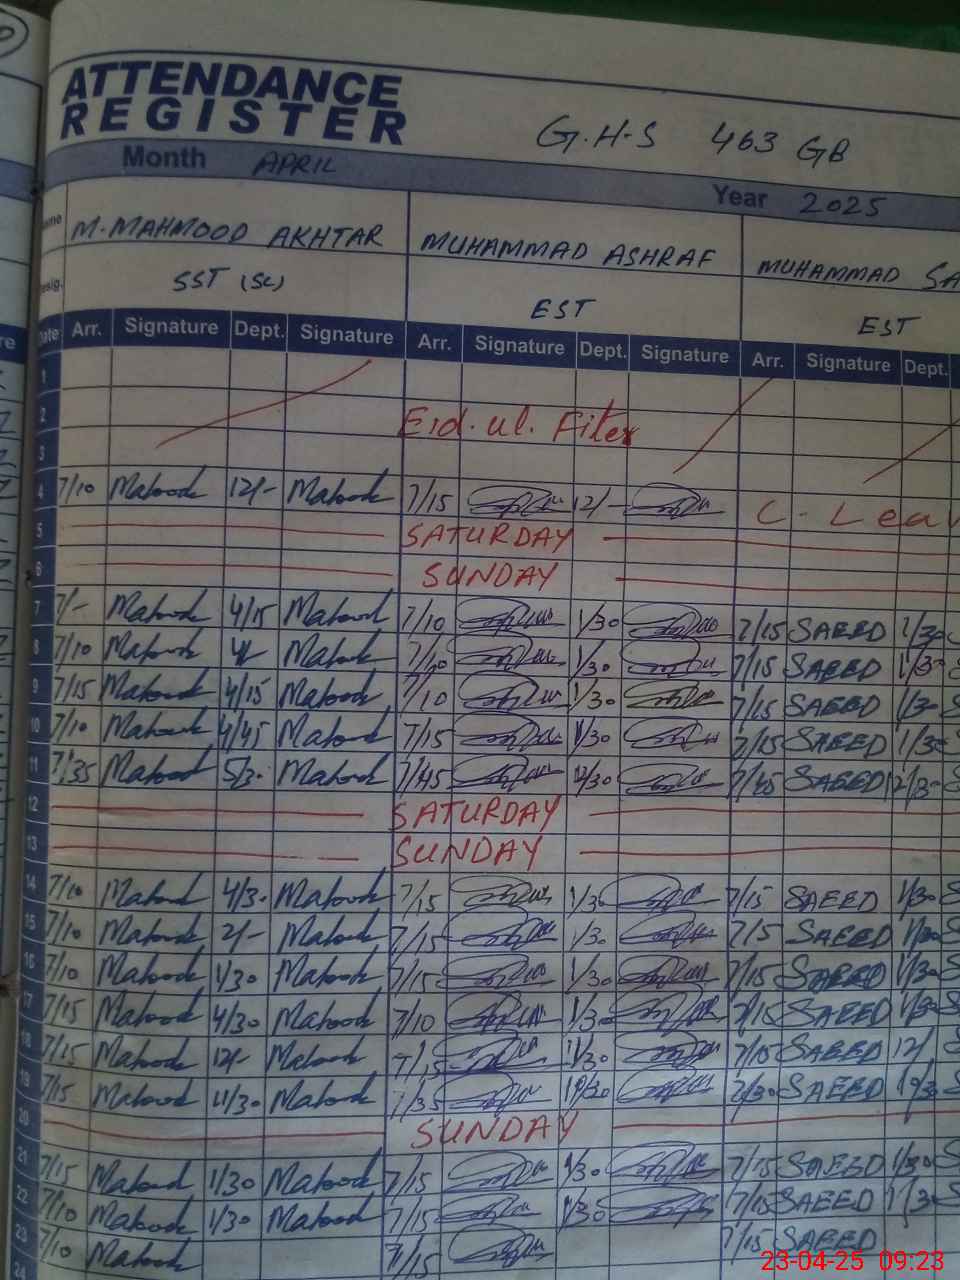 ATTENDANCE
REGISTER
G.H.S 463 GB
Month APRIL
Year 2025
M. MAHMOOD AKHTAR MUHAMMAD ASHRAF MUHAMMAD SA
SST (SC) EST EST
Arr. Signature Dept. Signature Arr. Signature Dept. Signature Arr. Signature Dept.
1
2 Eid. ul. Fiter
3
4 7/10 Mahood 12/- Mahood 7/15 12/- C. Leav
5 SATURDAY
6 SUNDAY
7 7/- Mahood 4/15 Mahood 7/10 1/30 7/15 SAEED 1/30
8 7/10 Mahood Mahood 7/10 1/30 7/15 SAEED 1/30
9 7/15 Mahood 4/15 Mahood 7/10 1/30 7/15 SAEED 1/30
10 7/10 Mahood 4/45 Mahood 7/15 1/30 7/15 SAEED 1/30
11 7/35 Mahood 5/3. Mahood 7/45 12/30 7/45 SAEED 12/30
12 SATURDAY
13 SUNDAY
14 7/10 Mahood 4/3. Mahood 7/15 1/30 7/15 SAEED 1/30
15 7/10 Mahood 2/- Mahood 7/15 1/30 7/15 SAEED 1/30
16 7/10 Mahood 1/30 Mahood 7/15 1/30 7/15 SAEED 1/30
17 7/15 Mahood 4/30 Mahood 7/10 1/30 7/15 SAEED 1/30
18 7/15 Mahood 12/- Mahood 7/15 7/15 SAEED 12/
19 7/15 Mahood 4/30 Mahood 7/35 7/30 SAEED
20 SUNDAY
21 7/15 Mahood 1/30 Mahood 7/15 1/30 7/15 SAEED 1/30
22 7/10 Mahood 1/30 Mahood 7/15 1/30 7/15 SAEED 1/30
23 7/10 Mahood 7/15 7/15 SAEED
24
23-04-25 09:23